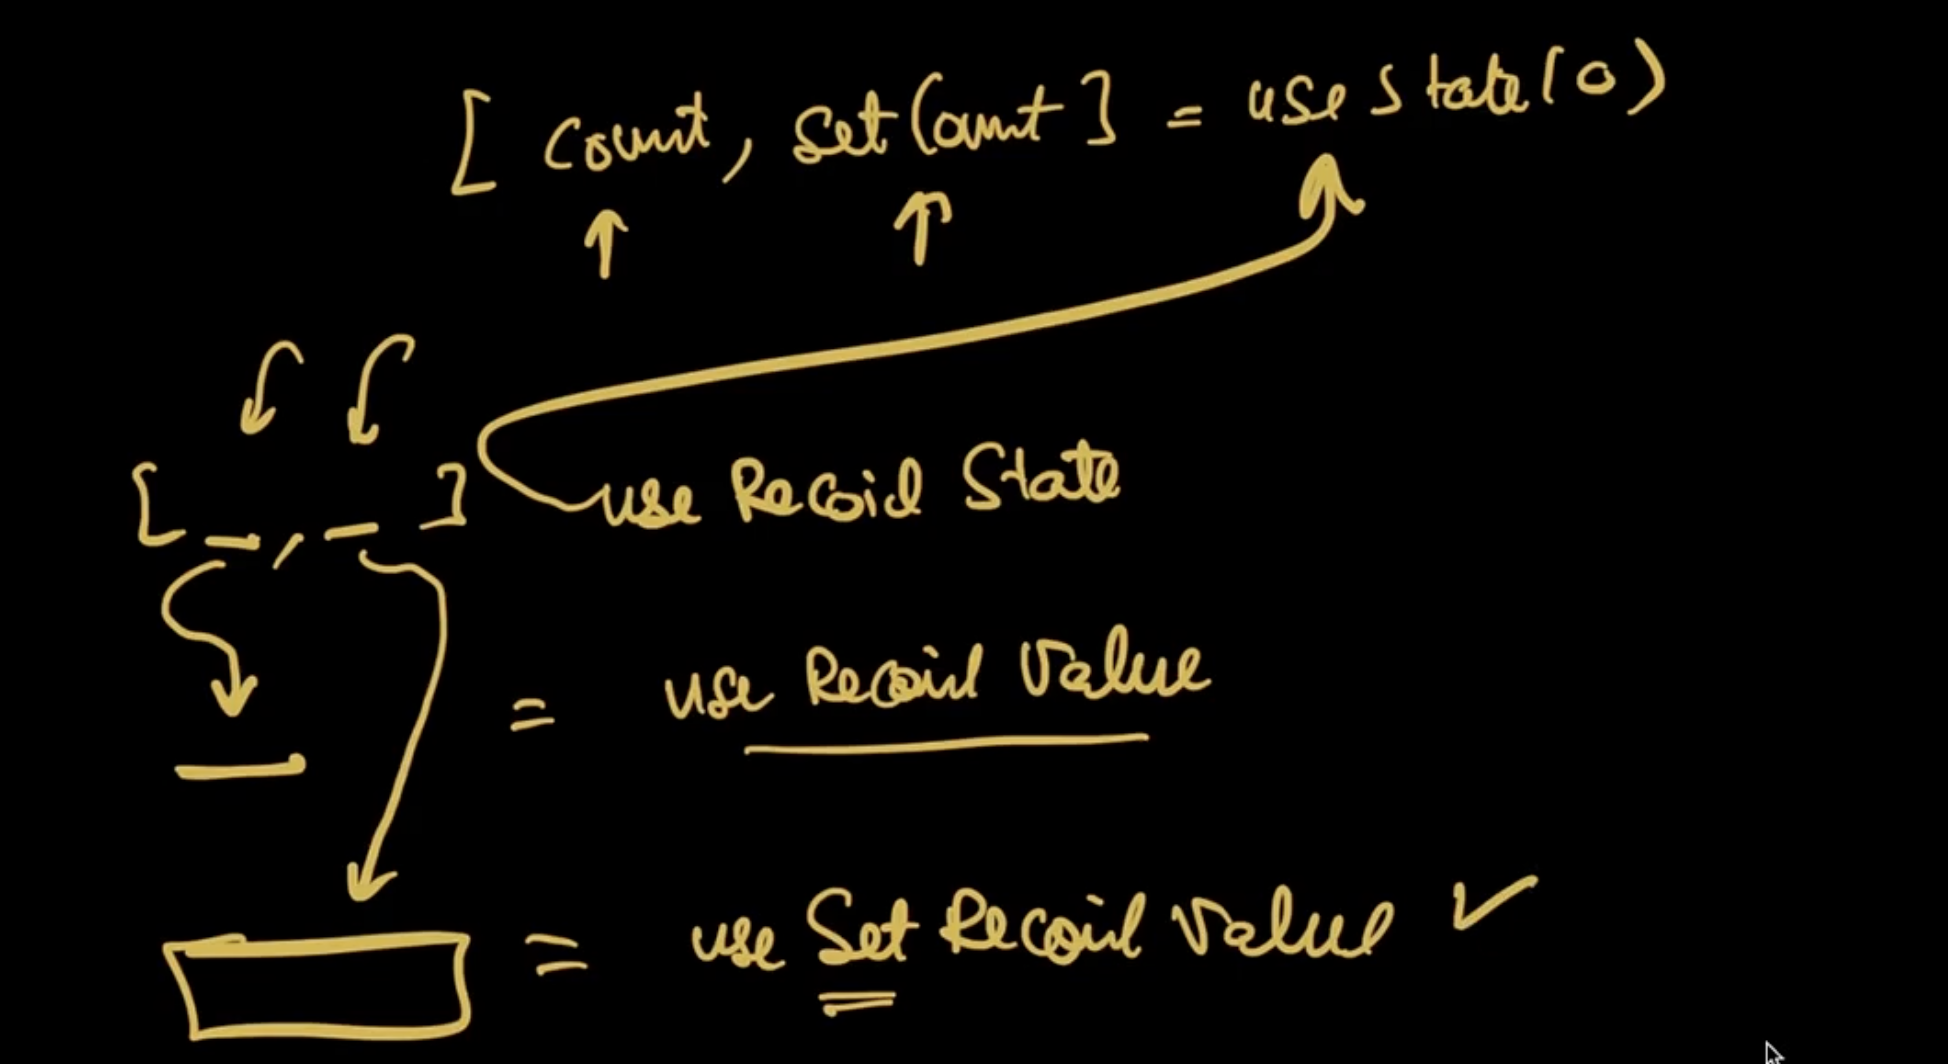 [ count, setCount ] = useState(0)
[ _, _ ] use Recoil State
= use Recoil Value
= use Set Recoil Value ✓